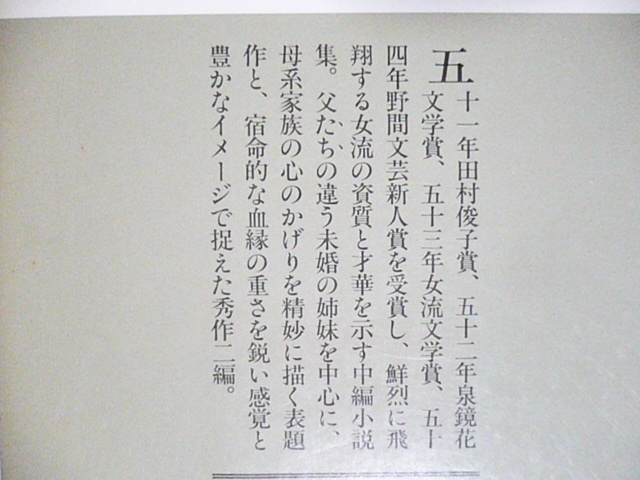 五十一年田村俊子賞、五十二年泉鏡花
文学賞、五十三年女流文学賞、五十
四年野間文芸新人賞を受賞し、鮮烈に飛
翔する女流の資質と才華を示す中編小説
集。父たちの違う未婚の姉妹を中心に、
母系家族の心のかげりを精妙に描く表題
作と、宿命的な血縁の重さを鋭い感覚と
豊かなイメージで捉えた秀作二編。